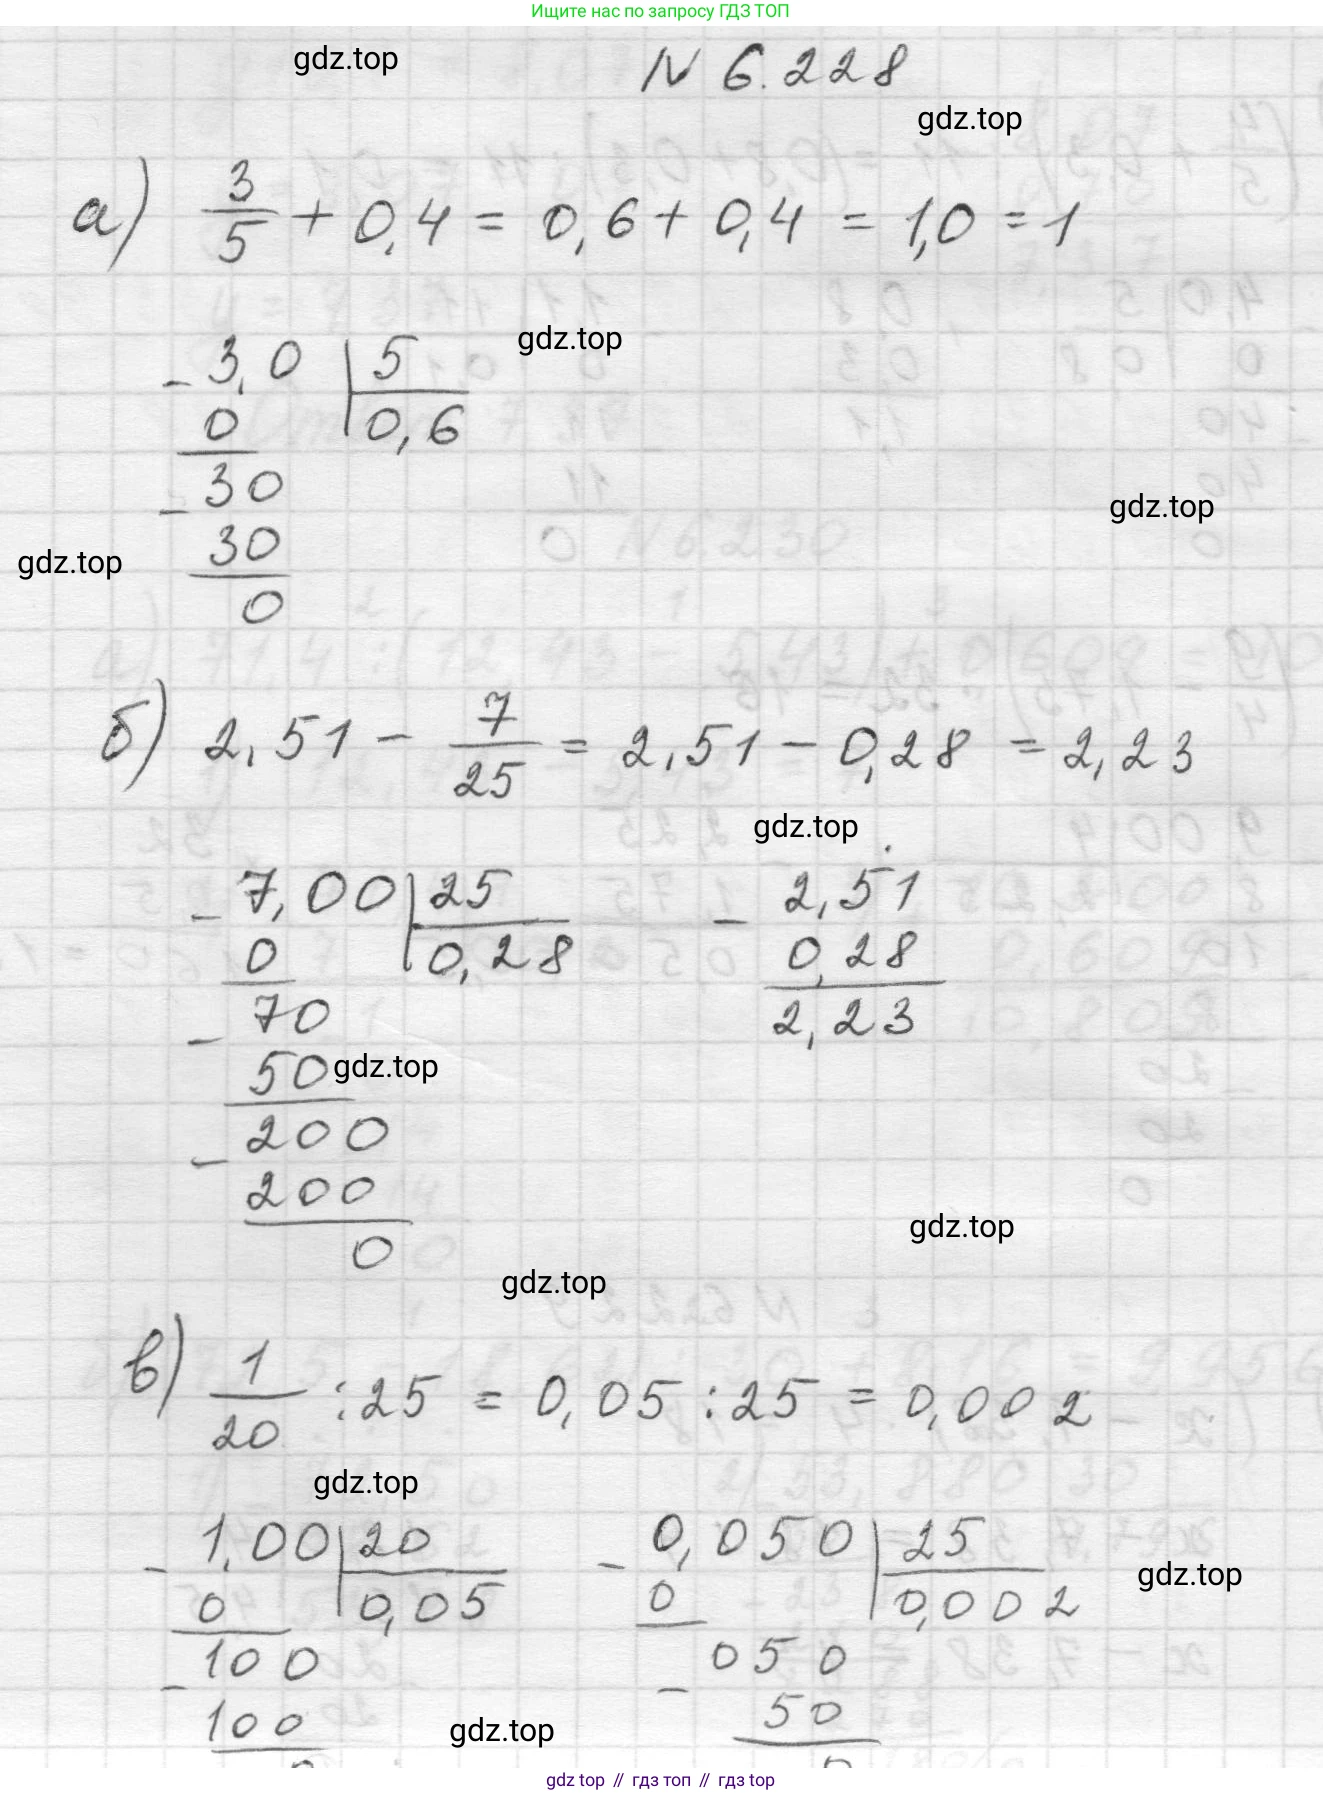 Ищите нас по запросу ГДЗ ТОП
gdz.top
N 6.228
gdz.top
а) 3/5 + 0,4 = 0,6 + 0,4 = 1,0 = 1
gdz.top
- 3,0 | 5
0 | 0,6
- 30
gdz.top
30
gdz.top
0
б) 2,51 - 7/25 = 2,51 - 0,28 = 2,23
gdz.top
- 7,00 | 25 - 2,51
0 | 0,28 0,28
- 70 2,23
50
gdz.top
- 200
200
gdz.top
0
gdz.top
в) 1/20 : 25 = 0,05 : 25 = 0,002
gdz.top
- 1,00 | 20 - 0,050 | 25
gdz.top
0 | 0,05 0 | 0,002
- 100 - 050
100 50
gdz.top
0 0
gdz top // гдз топ // gdz top